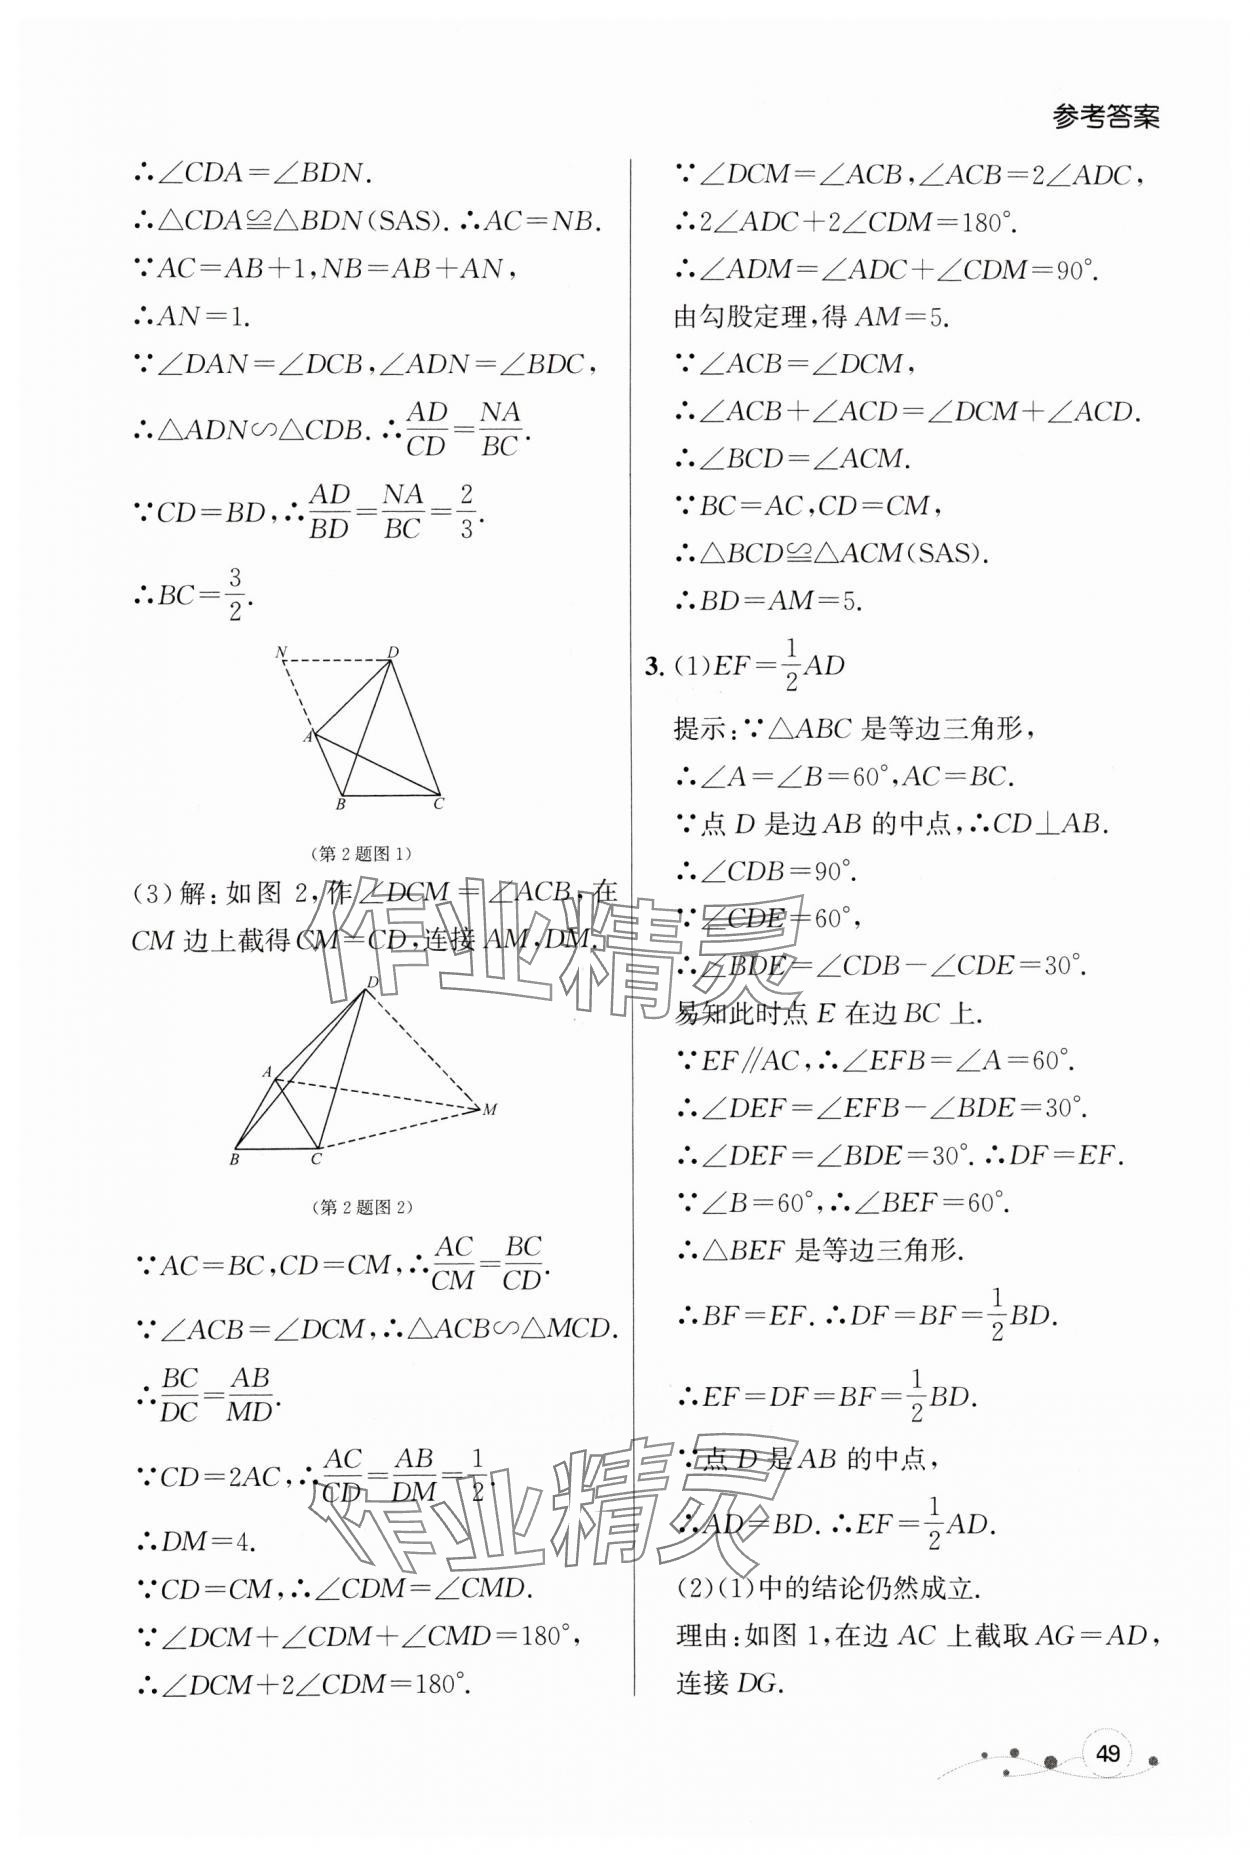 参考答案
∴∠CDA=∠BDN.
∴△CDA≌△BDN(SAS). ∴AC=NB.
∵AC=AB+1,NB=AB+AN,
∴AN=1.
∵∠DAN=∠DCB,∠ADN=∠BDC,
∴△ADN∽△CDB. ∴AD/CD=NA/BC.
∵CD=BD,∴AD/BD=NA/BC=2/3.
∴BC=3/2.
N D
A
B C
(第2题图1)
(3)解:如图2,作∠DCM=∠ACB,在
CM边上截得CM=CD,连接AM,DM.
D
A
M
B C
(第2题图2)
∵AC=BC,CD=CM,∴AC/CM=BC/CD.
∵∠ACB=∠DCM,∴△ACB∽△MCD.
∴BC/DC=AB/MD.
∵CD=2AC,∴AC/CD=AB/DM=1/2.
∴DM=4.
∵CD=CM,∴∠CDM=∠CMD.
∵∠DCM+∠CDM+∠CMD=180°,
∴∠DCM+2∠CDM=180°.
∵∠DCM=∠ACB,∠ACB=2∠ADC,
∴2∠ADC+2∠CDM=180°.
∴∠ADM=∠ADC+∠CDM=90°.
由勾股定理,得AM=5.
∵∠ACB=∠DCM,
∴∠ACB+∠ACD=∠DCM+∠ACD.
∴∠BCD=∠ACM.
∵BC=AC,CD=CM,
∴△BCD≌△ACM(SAS).
∴BD=AM=5.
3. (1)EF=1/2AD
提示:∵△ABC是等边三角形,
∴∠A=∠B=60°,AC=BC.
∵点D是边AB的中点,∴CD⊥AB.
∴∠CDB=90°.
∵∠CDE=60°,
∴∠BDE=∠CDB-∠CDE=30°.
易知此时点E在边BC上.
∵EF∥AC,∴∠EFB=∠A=60°.
∴∠DEF=∠EFB-∠BDE=30°.
∴∠DEF=∠BDE=30°. ∴DF=EF.
∵∠B=60°,∴∠BEF=60°.
∴△BEF是等边三角形.
∴BF=EF. ∴DF=BF=1/2BD.
∴EF=DF=BF=1/2BD.
∵点D是AB的中点,
∴AD=BD. ∴EF=1/2AD.
(2)(1)中的结论仍然成立.
理由:如图1,在边AC上截取AG=AD,
连接DG.
作业精灵
作业精灵
49